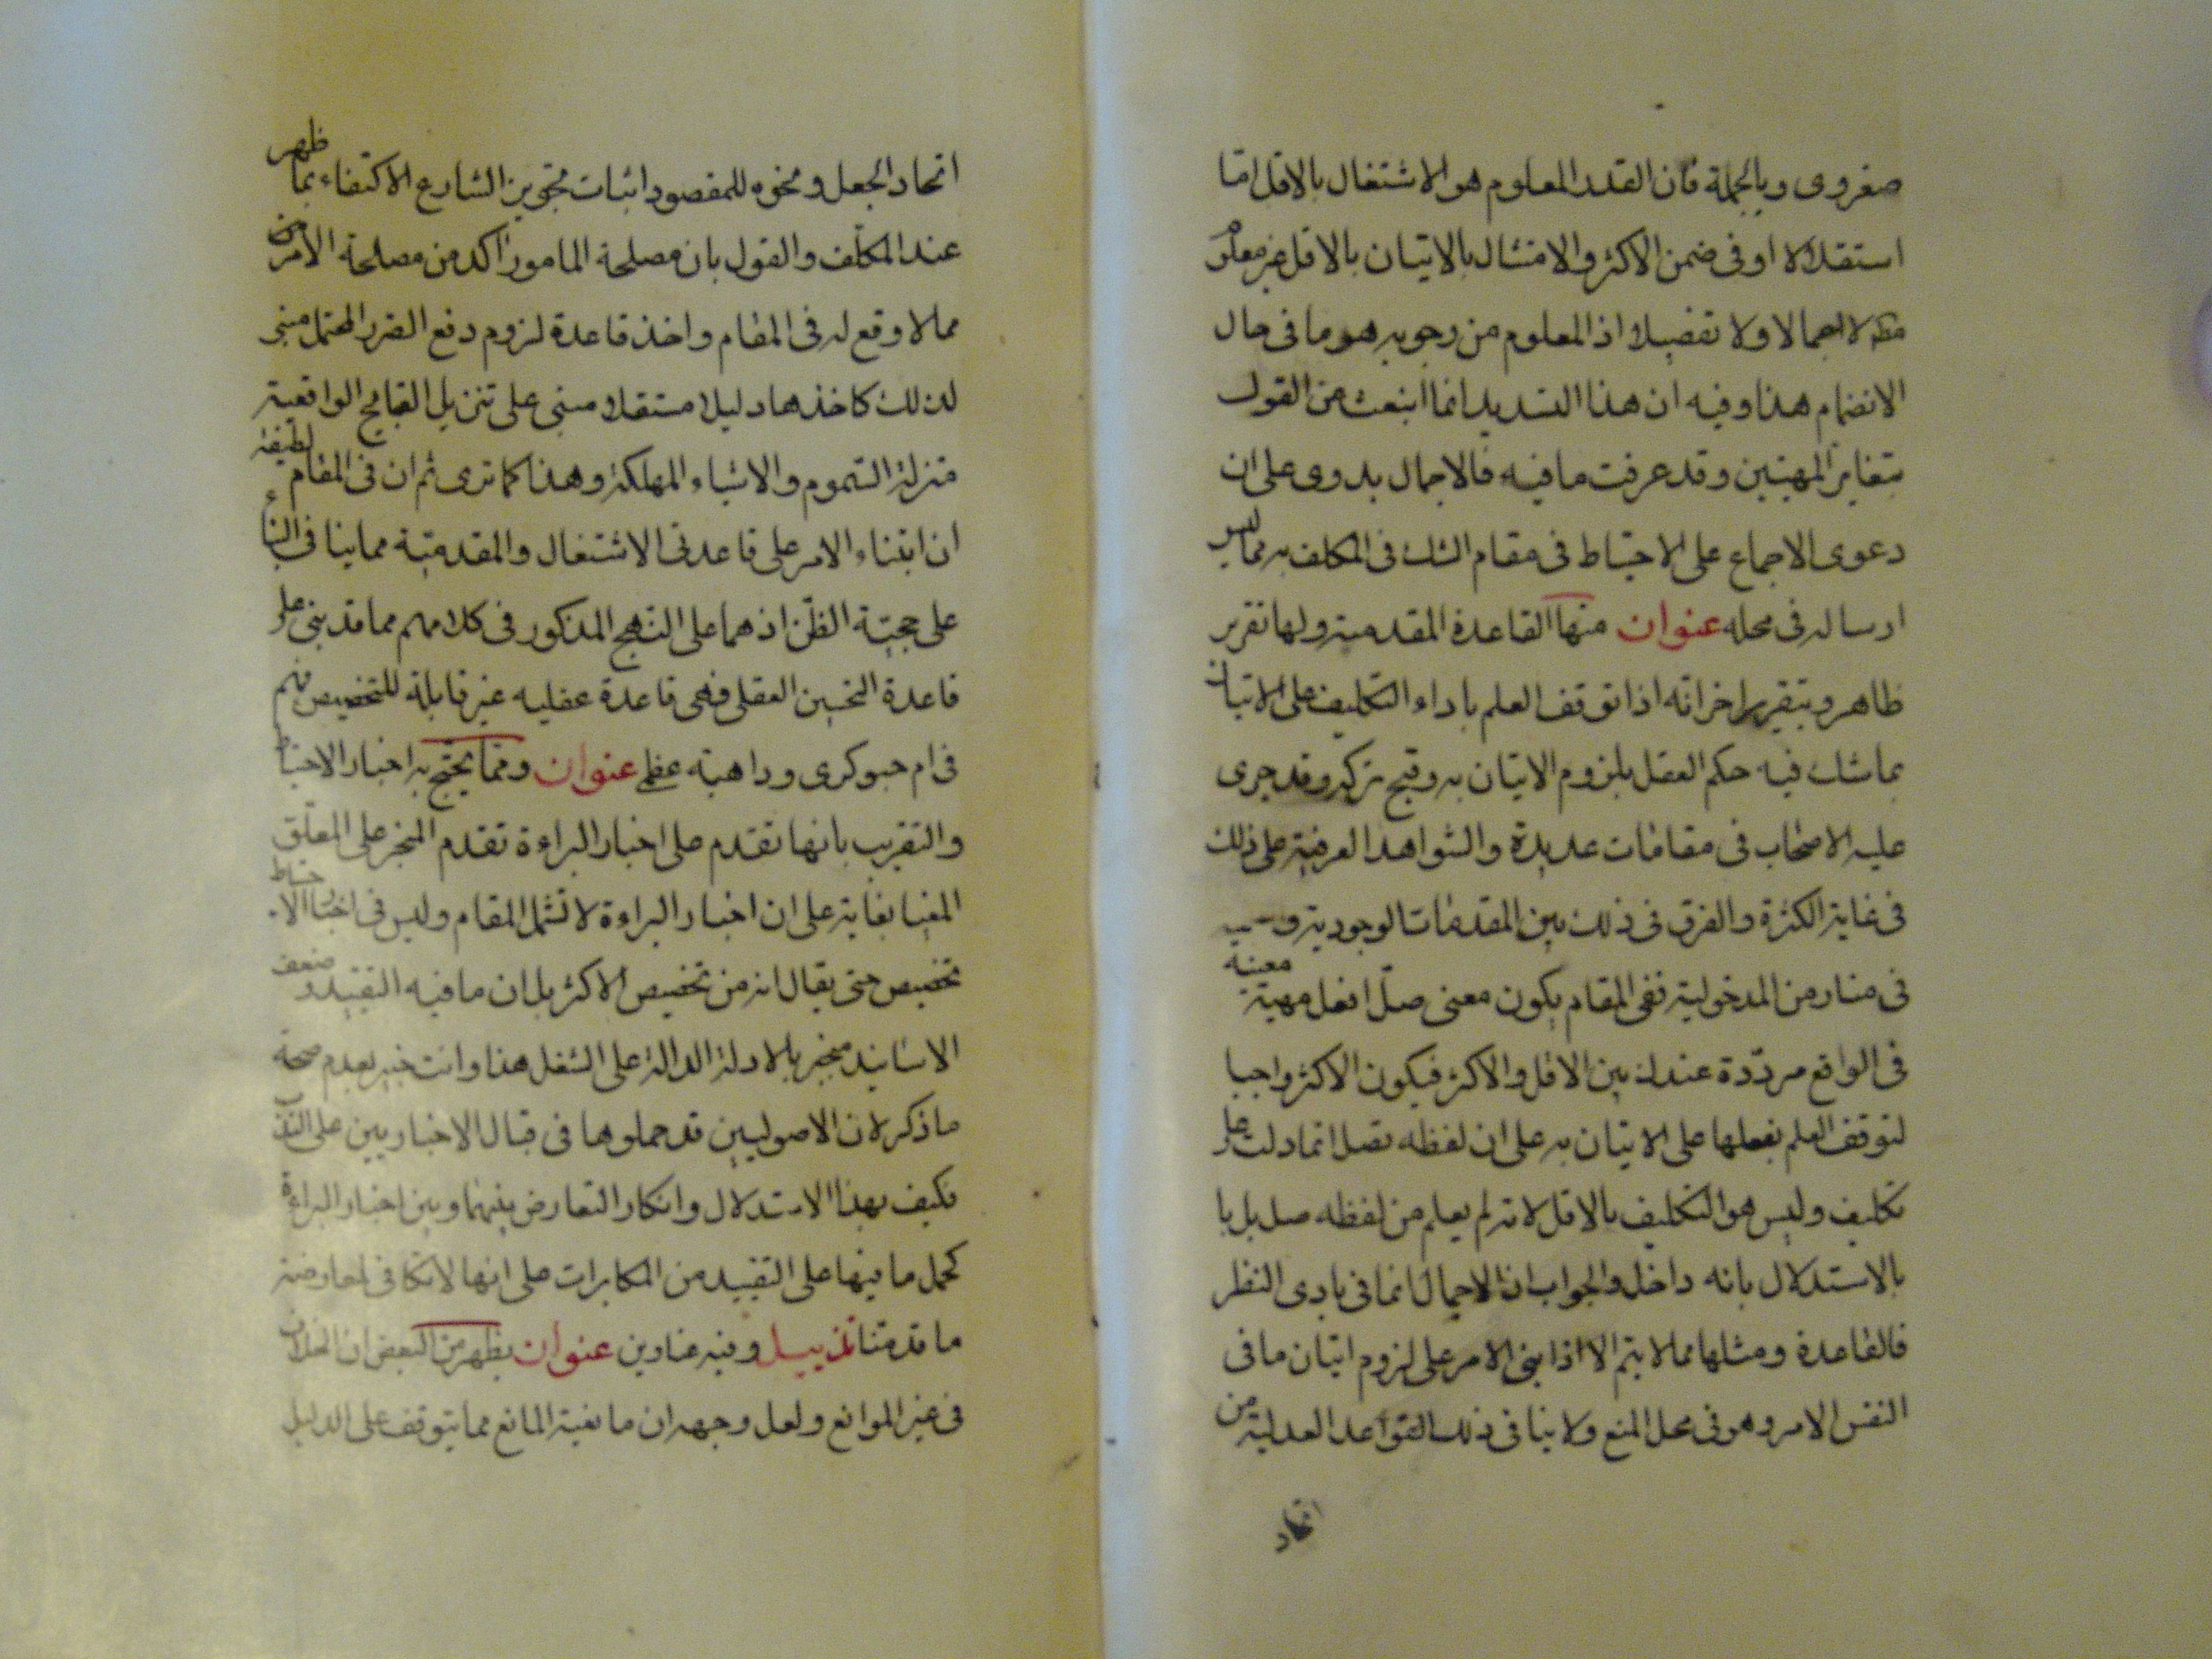 صغروى وبالجملة فان القدر المعلوم هو الاشتغال بالاقل اما
استقلالا او فى ضمن الاكثر والامتثال بالاتيان بالاقل غير معلوم
لا اجمالا ولا تفصيلا اذ المعلوم من وجوبه هو ما فى حال
الانضمام هذا وفيه ان هذا التسديد انما انبعث من القول
بتغاير المهيتين وقد عرفت ما فيه فالاجمال بدوى على ان
دعوى الاجماع على الاحتياط فى مقام الشك فى المكلف به مما ليس
ارساله فى محله عنوان منها القاعدة المقدمية ولها تقرير
ظاهر وبتقرير اخر انه اذا توقف العلم باداء التكليف على الاتيان
بما شك فيه حكم العقل بلزوم الاتيان به وقبح تركه وقد جرى
عليه الاصحاب فى مقامات عديدة والشواهد العرفية على ذلك
فى غاية الكثرة والفرق فى ذلك بين المقدمات الوجودية و
فى منار من المدخولية ففى المقام يكون معنى صل افعل مهية معينة
فى الواقع مرددة عندك بين الاقل والاكثر فيكون الاكثر واجبا
لتوقف العلم بفعلها على الاتيان به على ان لفظه تصل انما دلت على
تكليف وليس هو التكليف بالاقل لانه لم يعلم من لفظه صل بل با
بالاستدلال بانه داخل والجواب ان الاجمال انما فى بادى النظر
فالقاعدة ومثلها مما لا يتم الا اذا بنى الامر على لزوم اتيان ما فى
النفس الامر وهو فى محل المنع ولا ينافى ذلك القواعد العدلية من
اتحاد
اتحاد الجعل ونحوه للمقصود اثبات تجويز الشارع الاكتفاء بما ظهر
عند المكلف والقول بان مصلحة المامور اكد من مصلحة الامر من
مما لا وقع له فى المقام واخذ قاعدة لزوم دفع الضرر المحتمل مبنى
لذلك كاخذها دليلا مستقلا مبنى على تنزيل القبايح الواقعية
منزلة السموم والاشياء المهلكة وهذا كما ترى ثم ان فى المقام لطيفة
ان ابتناء الامر على قاعدتى الاشتغال والمقدمية مما ينافى البناء
على حجية الظن اذ هما على النهج المذكور فى كلامهم مما قد بنى على
قاعدة التحسين العقلى فهى قاعدة عقليه غير قابلة للتخصيص فهم
فى ام حبوكرى وداهية عظمى عنوان ومما يحتج به اخبار الاحتياط
والتقريب بانها تقدم على اخبار البراءة تقدم المنجز على المعلق
المغيا بغاية على ان اخبار البراءة لا تشمل المقام وليس فى اخبار الاحتياط
تخصيص حتى يقال انه من تخصيص الاكثر بل ان ما فيه التقييد وضعف
الاسانيد منجبر بالادلة الدالة على الشغل هذا وانت خبير بعدم صحة
ما ذكر لان الاصوليين قد حملوها فى قبال الاخباريين على الندب
فكيف بهذا الاستدلال وانكار التعارض بينهما وبين اخبار البراءة
كحمل ما فيها على التقييد من المكابرات على انها لا تكافى لمعارضة
ما قدمنا تذييل وفيه عناوين عنوان يظهر من البعض ان الخلاف
فى غير الموانع ولعل وجهه ان مانعية المانع مما يتوقف على الدليل